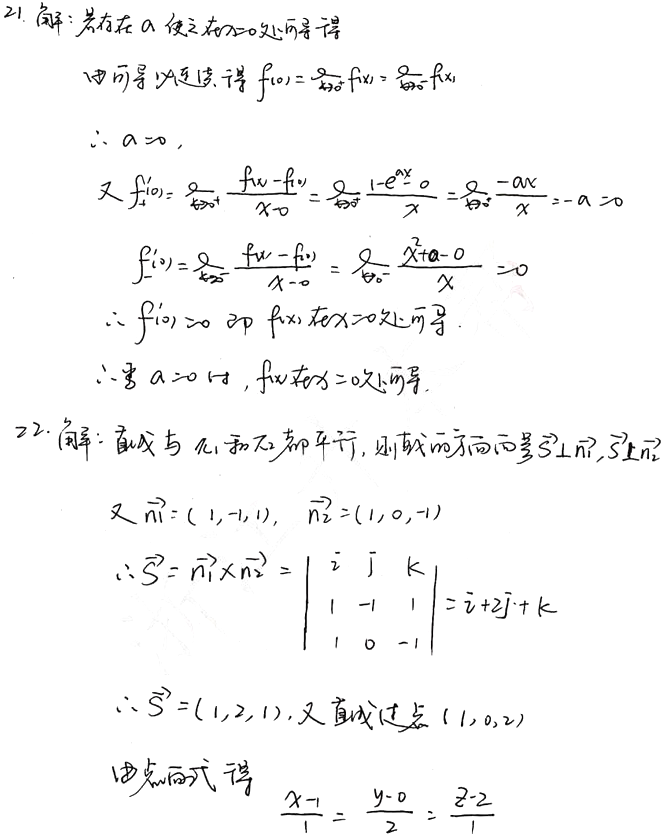 21. 解：若存在 a 使之在x=0处可导得
由可导必连续得 f(0) = lim x→0⁺ f(x) = lim x→0⁻ f(x)
∴ a=0，
又 f₊'(0) = lim x→0⁺ (f(x)-f(0))/(x-0) = lim x→0⁺ (1-e^(ax)-0)/x = lim x→0⁺ (-ax)/x = -a = 0
f₋'(0) = lim x→0⁻ (f(x)-f(0))/(x-0) = lim x→0⁻ (x²+a-0)/x = 0
∴ f'(0)=0 即 f(x) 在x=0处可导.
∴当 a=0 时，f(x)在x=0处可导.
22. 解：直线与 π₁ 和 π₂ 都平行，则直线的方向向量 S⃗⊥n₁⃗, S⃗⊥n₂⃗
又 n₁⃗=(1,-1,1), n₂⃗=(1,0,-1)
∴ S⃗ = n₁⃗×n₂⃗ = | i j k |
| 1 -1 1 | = i+2j+k
| 1 0 -1 |
∴ S⃗=(1,2,1). 又直线过点 (1,0,2)
由点向式得
(x-1)/1 = (y-0)/2 = (z-2)/1